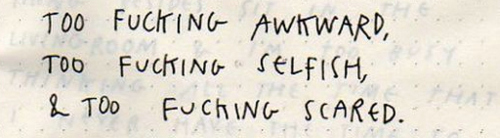 TOO FUCKING AWKWARD,
TOO FUCKING SELFISH,
& TOO FUCKING SCARED.